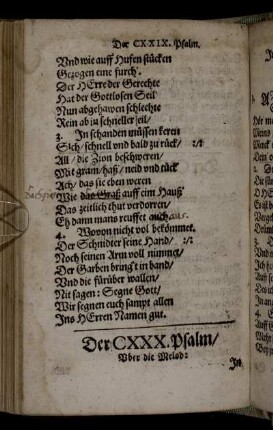 Der CXXIX. Psalm.
Vnd wie auff Hufen stücken
Gezogen eine furch'.
Der HErre der Gerechte
Hat der Gottlosen Seil
Nun abgehawen schlechte
Rein ab in schneller eil/
3. In schanden müssen keren
Sich/ schnell vnd bald zu rück/ :/:
All/ die Zion beschweren/
Mit gram/ haß/ neid vnd tück
Ach/ das sie eben weren
Wie das Graß auff eim Hauß
Das zeitlich thut verdorren/
Eh dann mans reuffet auch aus.
4. Wovon nicht vol bekömmet.
Der Schnitter seine Hand/ :/:
Noch seinen Arm voll nimmet/
Der Garben bring't in band/
Vnd die fürüber wallen/
Nit sagen: Segne Gott/
Wir segnen euch sampt allen
Ins HErren Namen gut.
Der CXXX. Psalm/
Vber die Melod:
In